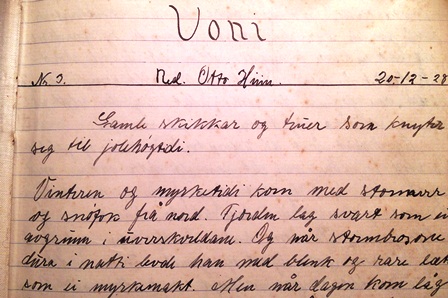 Voni
No 3. Red. Otto Hiim. 20-12-28
Gamle skikkar og truer som knyter
seg til jolehøgtidi.
Vinteren og myrketidi kom med stormver
og snöfok frå nord. Fjorden låg svart som ei
avgrunn i uverskveldane. Og når stormbrosene
dura i natti levde han med blenk og rare læt
som ei myrkemakt. Men når dagen kom låg